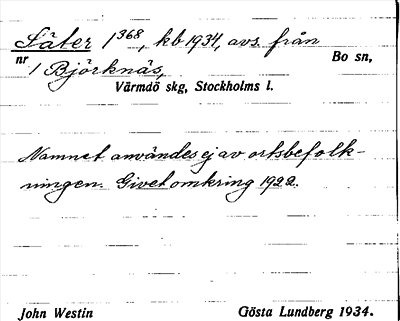 Säter 1³⁶⁸, kb 1934, avs. från
nr 1 Björknäs, Bo sn,
Värmdö skg, Stockholms l.
Namnet användes ej av ortsbefolk-
ningen. Givet omkring 1922.
John Westin Gösta Lundberg 1934.